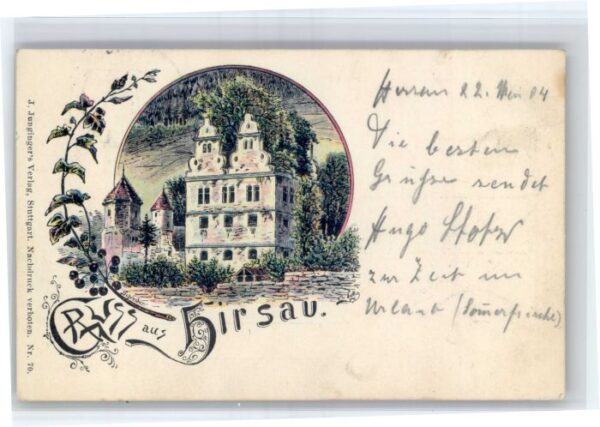 J. Junginger's Verlag, Stuttgart. Nachdruck verboten. Nr. 70.
Gruss aus Hirsau.
22. Mai 04
Die besten
Grüße sendet
Hugo
zur Zeit im
Urlaub (Somerfrische)